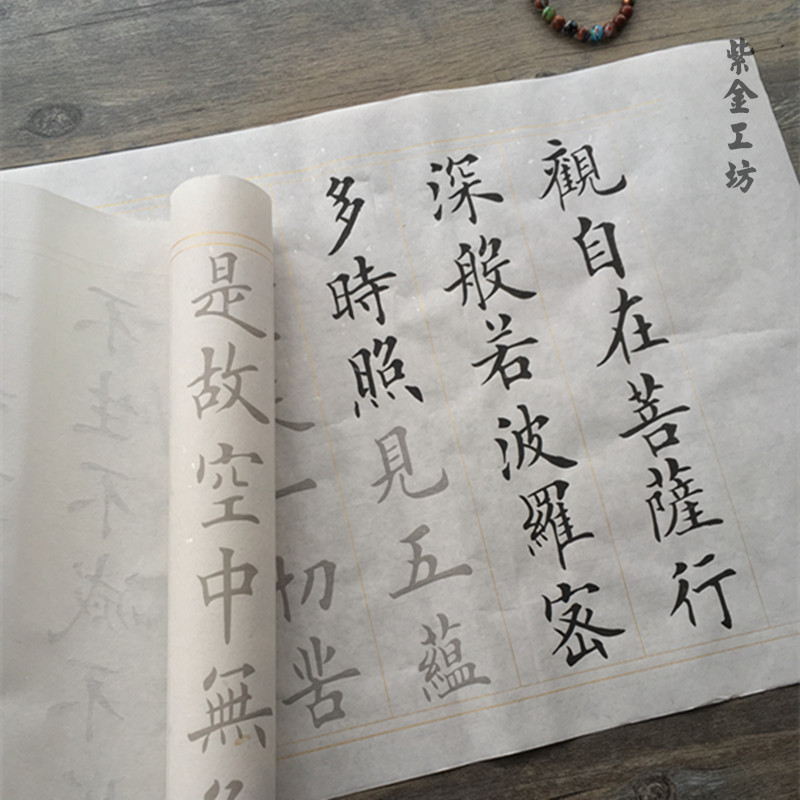 觀自在菩薩行
深般若波羅密
多時照見五蘊
一切苦
是故空中無
不生不減不
紫金工坊